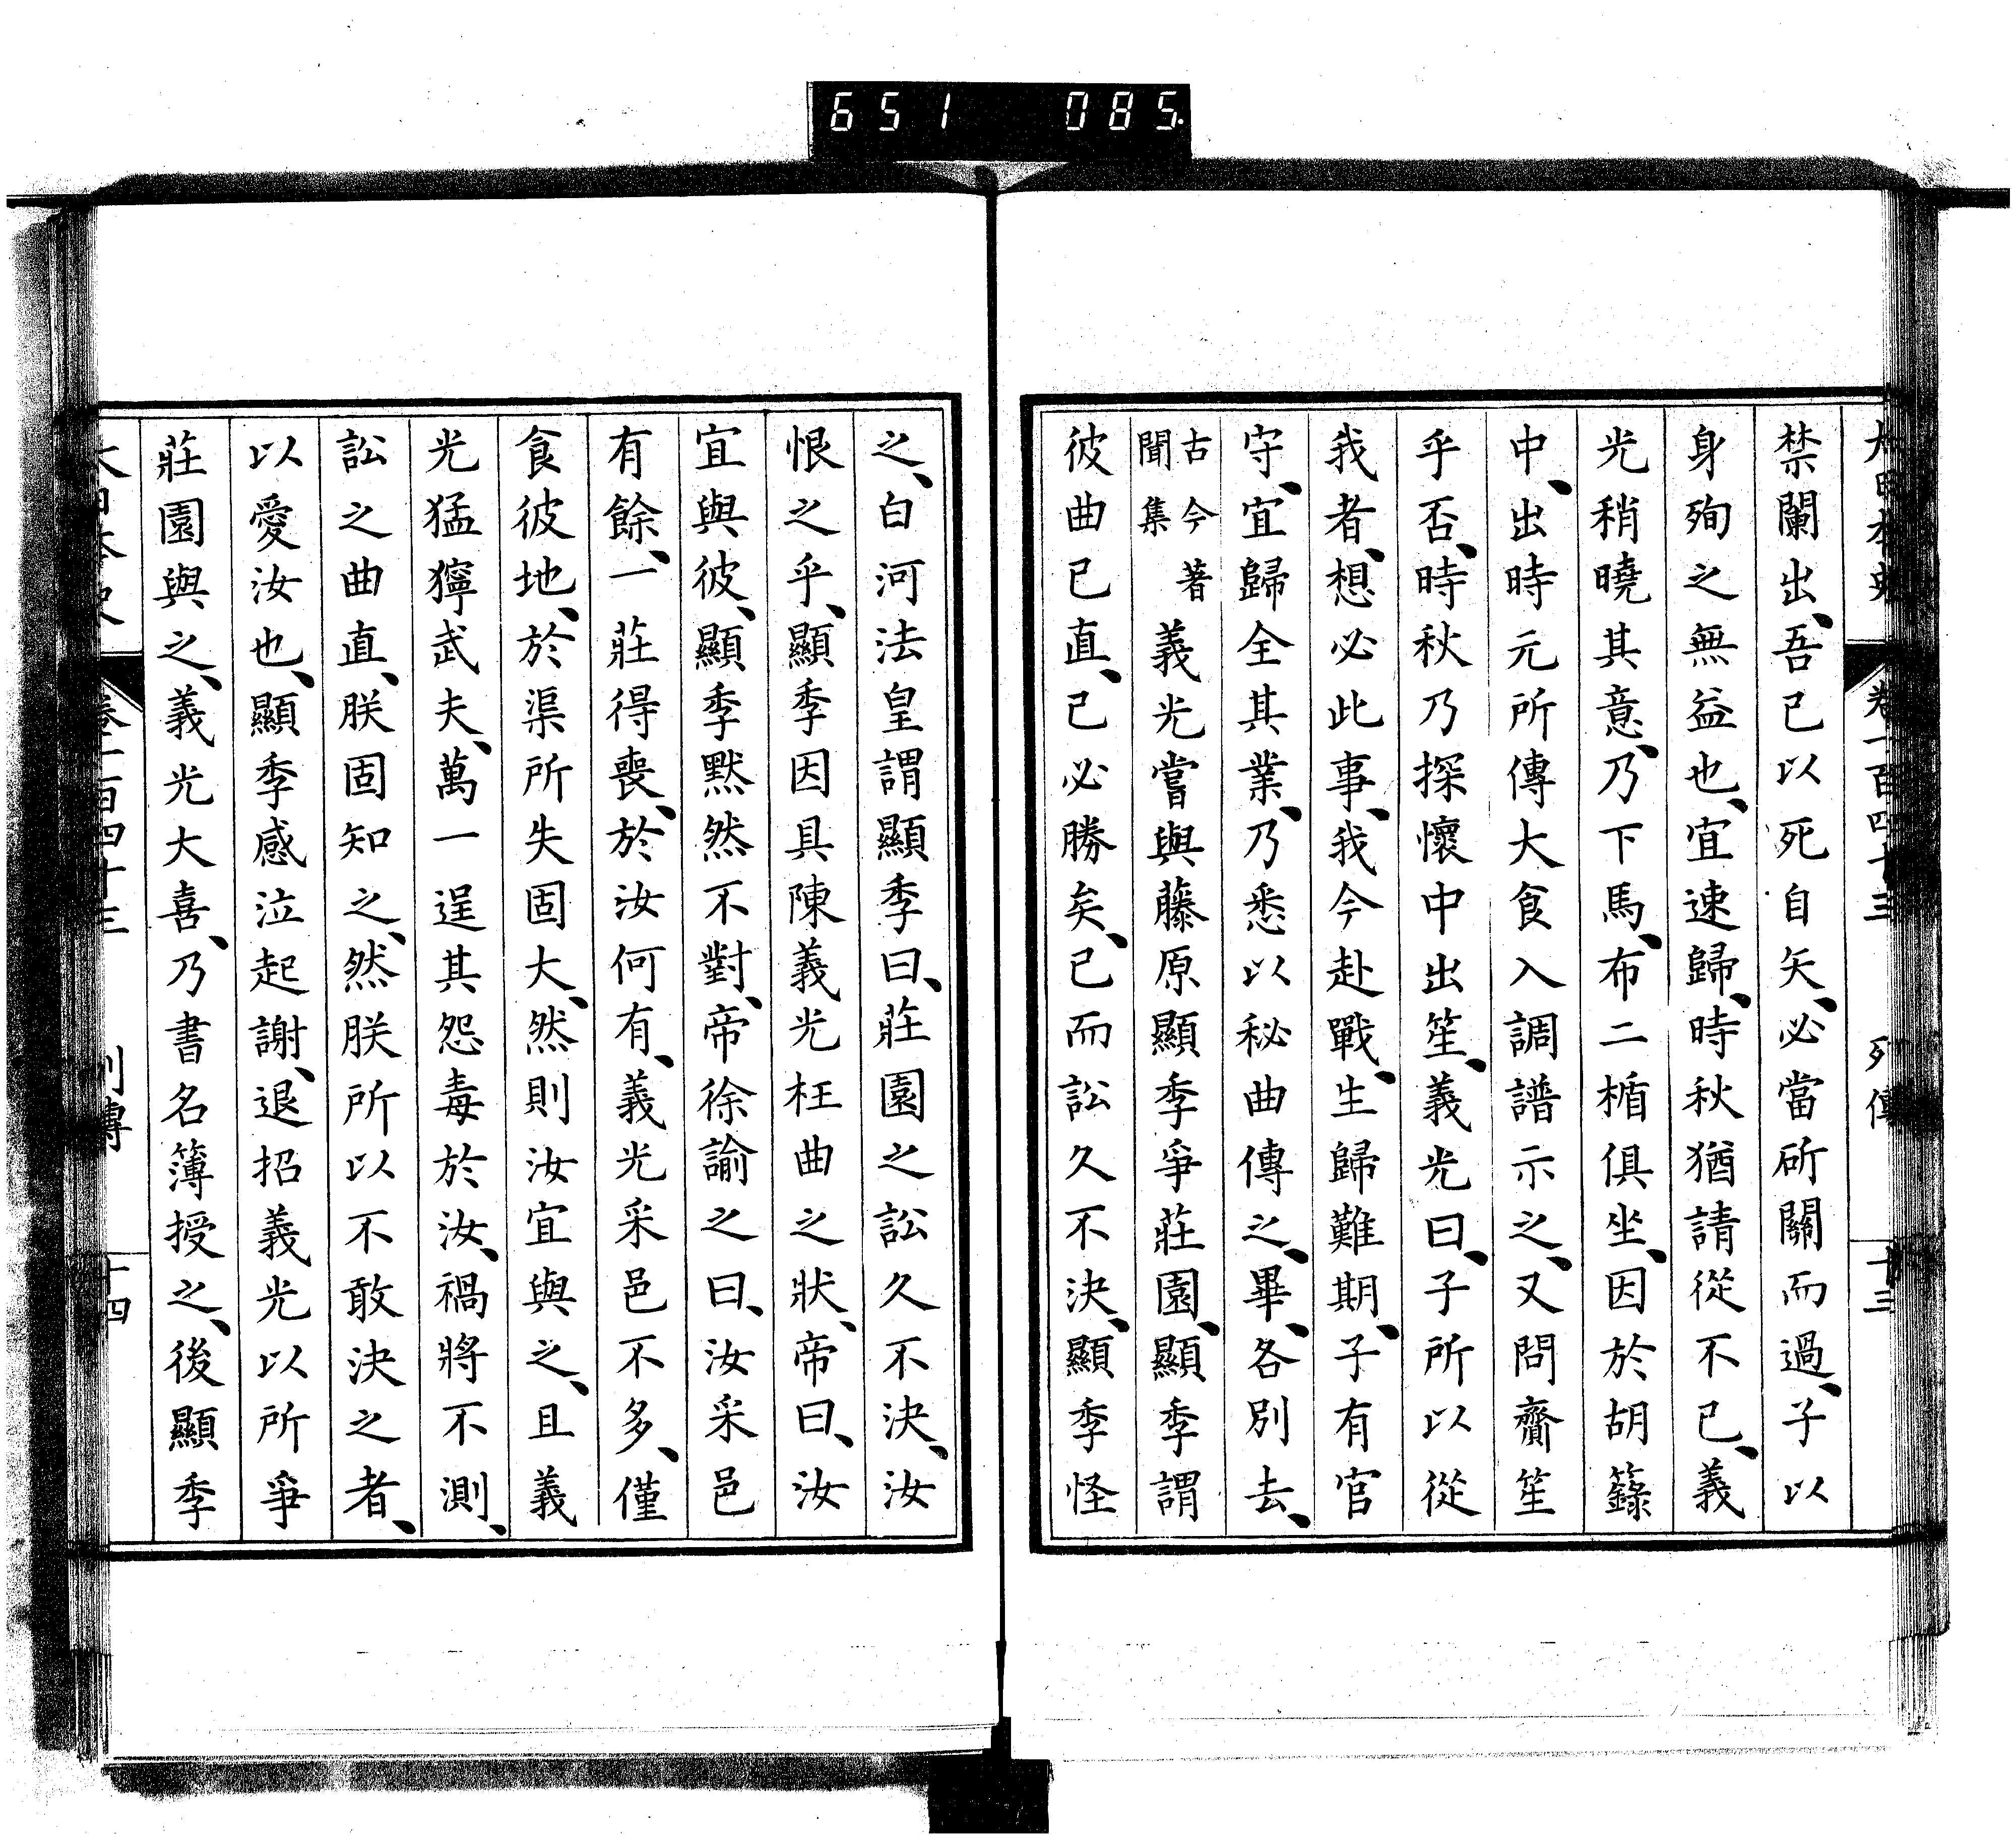 651 085
大日本史 卷一百四十三 列傳 十三
禁闌出、吾已以死自矢、必當斫關而過、子以
身殉之無益也、宜速歸、時秋猶請從不已、義
光稍曉其意、乃下馬、布二楯俱坐、因於胡籙
中、出時元所傳大食入調譜示之、又問齎笙
乎否、時秋乃探懷中出笙、義光曰、子所以從
我者、想必此事、我今赴戰、生歸難期、子有官
守、宜歸全其業、乃悉以秘曲傳之、畢、各別去、
古今著
聞集
義光嘗與藤原顯季爭莊園、顯季謂
彼曲已直、已必勝矣、已而訟久不決、顯季怪
之、白河法皇謂顯季曰、莊園之訟久不決、汝
恨之乎、顯季因具陳義光枉曲之狀、帝曰、汝
宜與彼、顯季默然不對、帝徐諭之曰、汝采邑
有餘、一莊得喪、於汝何有、義光采邑不多、僅
食彼地、於渠所失固大、然則汝宜與之、且義
光猛獰武夫、萬一逞其怨毒於汝、禍將不測、
訟之曲直、朕固知之、然朕所以不敢決之者、
以愛汝也、顯季感泣起謝、退招義光以所爭
莊園與之、義光大喜、乃書名簿授之、後顯季
大日本史 卷一百四十三 列傳 十四